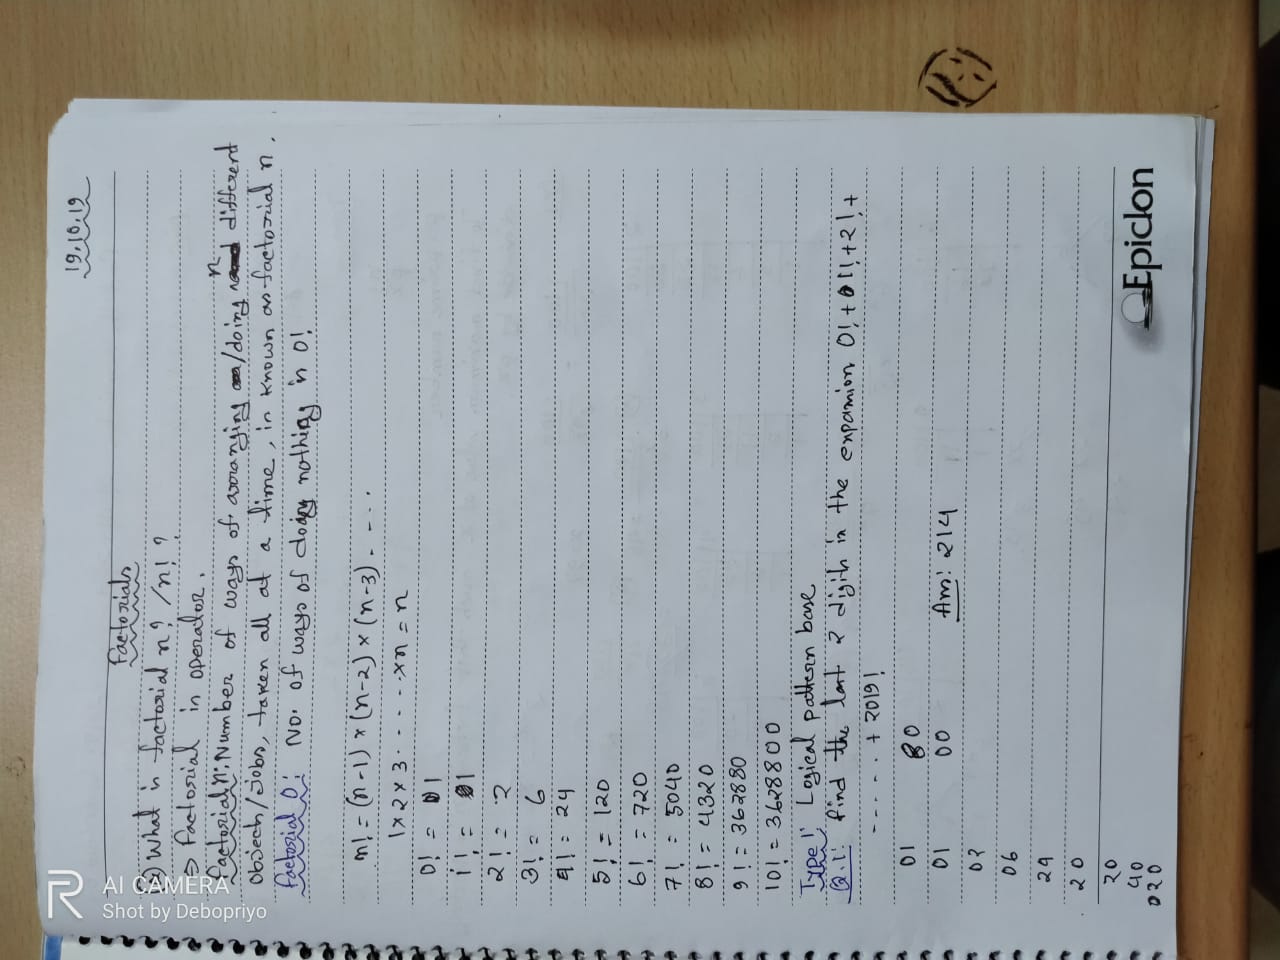 19.10.19
Factorials
What is factorial n? /n! ?
⇒ Factorial is operator.
Factorial n: Number of ways of arranging /doing n different
objects/jobs, taken all at a time, is known as factorial n.
Factorial 0: No. of ways of doing nothing is 0!
n! = (n-1) × (n-2) × (n-3) . - - . .
1 × 2 × 3 . - - - . . × n = n
0! = 1
1! = 1
2! = 2
3! = 6
4! = 24
5! = 120
6! = 720
7! = 5040
8! = 4320
9! = 362880
10! = 3628800
Type 1: Logical pattern base
Q.1: find the last 2 digits in the expansion 0! + 1! + 2! +
- - - . . . + 2019!
01 80
01 00 Ans: 214
02
06
24
20
20
40
20
Epiclon
AI CAMERA
Shot by Debopriyo